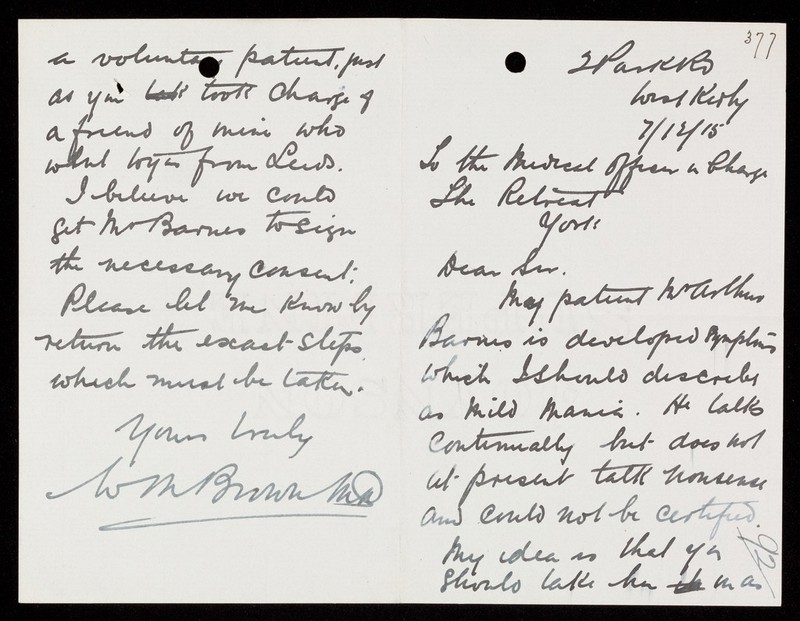 377
2 Park Rd
West Kirby
7/12/15
To the Medical Officer in Charge
The Retreat
York
Dear Sir.
My patient Mr Arthur
Barnes is developed symptoms
which I should describe
as mild mania. He talks
continually but does not
at present talk nonsense
and could not be certified.
My idea is that you
should take him in as
92
a voluntary patient, just
as you took charge of
a friend of mine who
went to you from Leeds.
I believe we could
get Mr Barnes to sign
the necessary consent.
Please let me know by
return the exact steps
which must be taken.
Yours truly
W M Brown MD